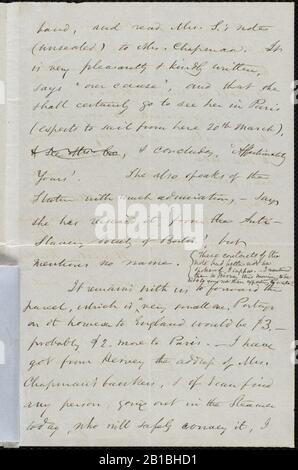 hand, and read Mrs. S.'s note
(unsealed) to Mrs. Chapman. It
is very pleasantly & kindly written,
says "our cause", and that she
shall certainly go to see her in Paris
(expects to sail from here 20th March),
& concludes, 'Affectionately
Yours'. She also speaks of the
Statue with much admiration, - says
she has it from the Anti-
Slavery Society of Boston', but
mentions no name.
It remains with us to forward the
parcel, which is very small. Postage
on it home to England would be $3, -
probably $2. more to Paris. - I have
got from Hervey the address of Mrs.
Chapman's bankers, & if I can find
any person, going out in the Steamer
today, who will safely convey it, I
2B1BHD1